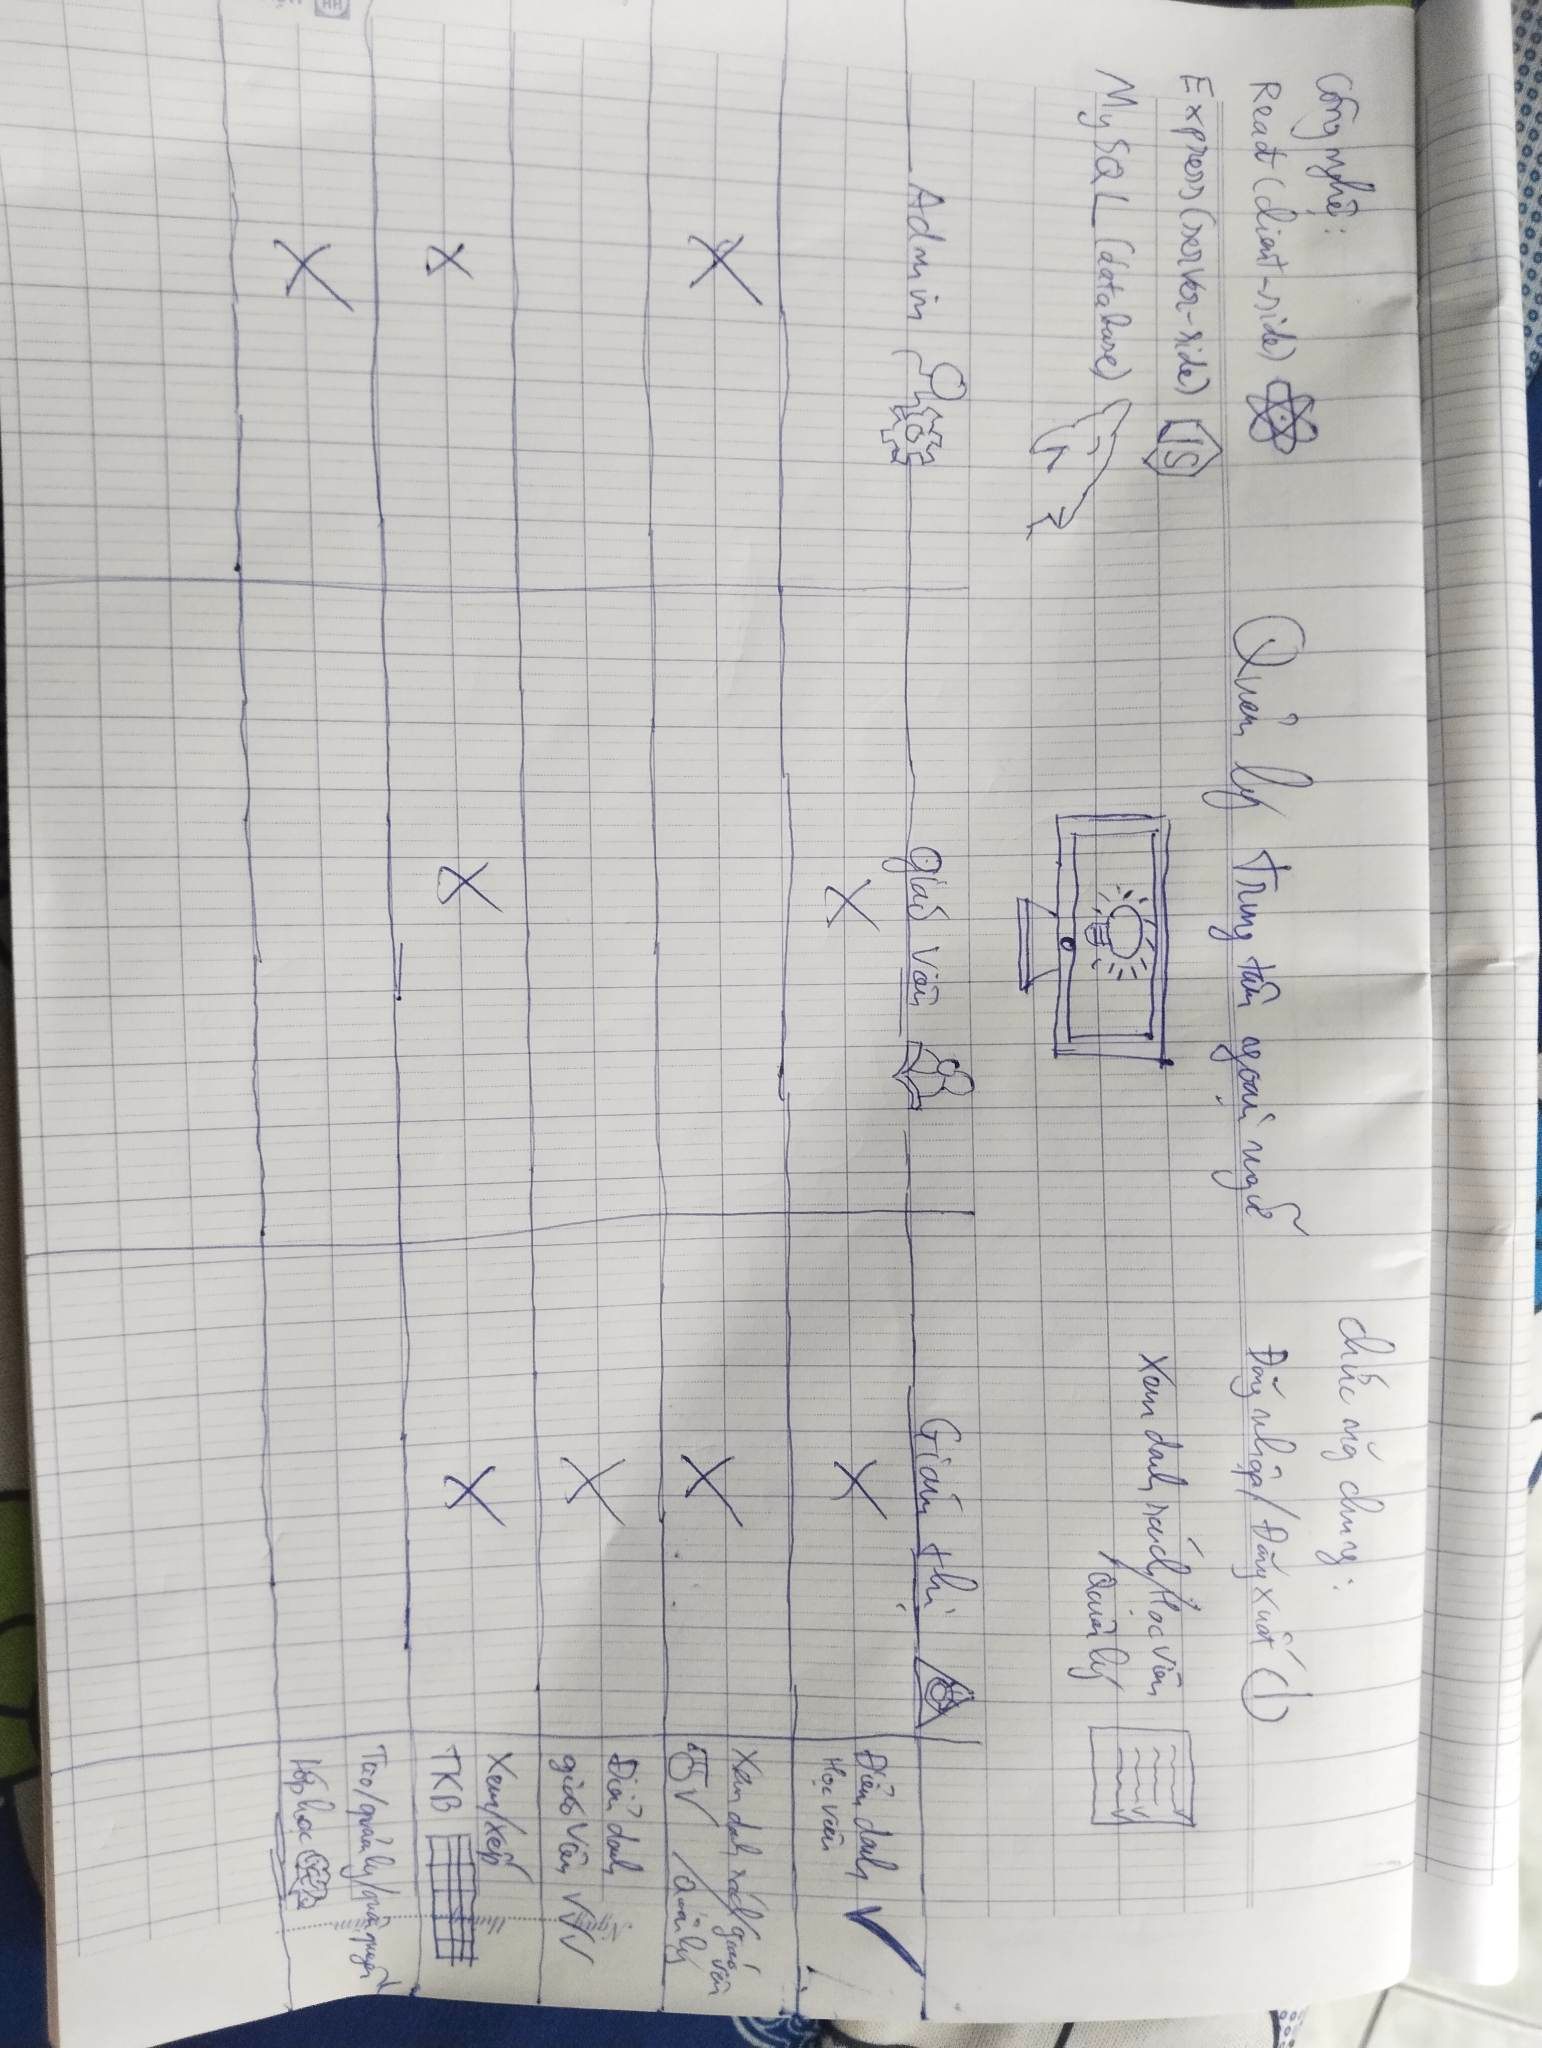 Công nghệ:
React (client-side)
Express (server-side)
JS
MySQL (database)
Quản lý trung tâm ngoại ngữ
Chức năg chung:
Đăg nhập / Đăg xuất
Xem danh sách / Học viên
Quản lý
Admin
Giáo viên
Giám thị
X X Điểm danh ✓
Học viên
X X Xem danh sách / giáo viên
✓ / Quản lý
X Điểm danh
giáo viên ✓✓✓
X X X Xem/xếp
TKB
X Tạo/quản lý/
lớp học